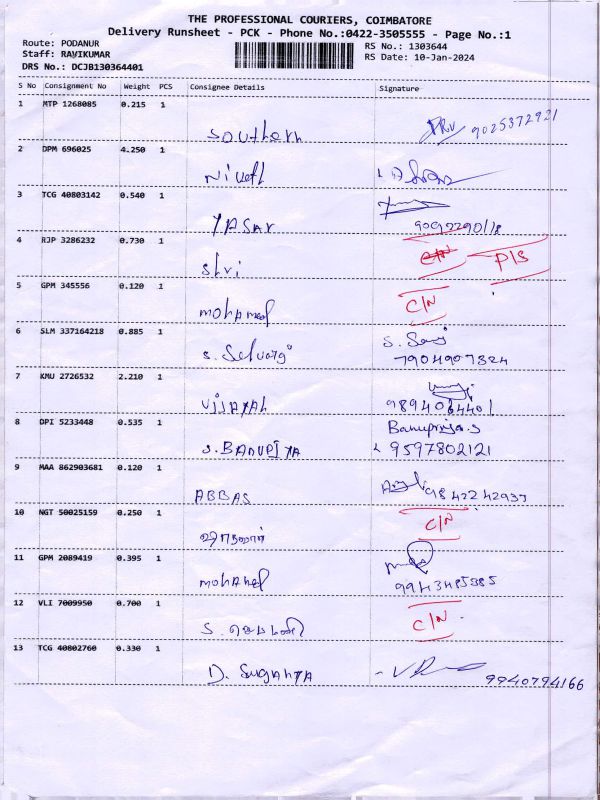 THE PROFESSIONAL COURIERS, COIMBATORE
Delivery Runsheet - PCK - Phone No.:0422-3505555 - Page No.:1
Route: PODANUR
RS No.: 1303644
Staff: RAVIKUMAR
RS Date: 10-Jan-2024
DRS No.: DCJB130364401
S No Consignment No Weight PCS Consignee Details Signature
1 MTP 1268085 0.215 1
Southern 9025372921
2 DPM 696025 4.250 1
3 TCG 40803142 0.540 1
YASAR
4 RJP 3286232 0.730 1
Shri P/S
5 GPM 345556 0.120 1
mohamed C/N
6 SLM 337164218 0.885 1
S. 7904907324
7 KMU 2726532 2.210 1
VIJAYAL 9894064401
8 DPI 5233448 0.535 1
Banupriya.S
S.BANUPIYA 9597802121
9 MAA 862903681 0.120 1
ABBAS 9842242937
10 NGT 50025159 0.250 1
C/N
11 GPM 2089419 0.395 1
mohamed 9943485385
12 VLI 7009950 0.700 1
S. C/N
13 TCG 40802760 0.330 1
D. SUGANYA 9940794166